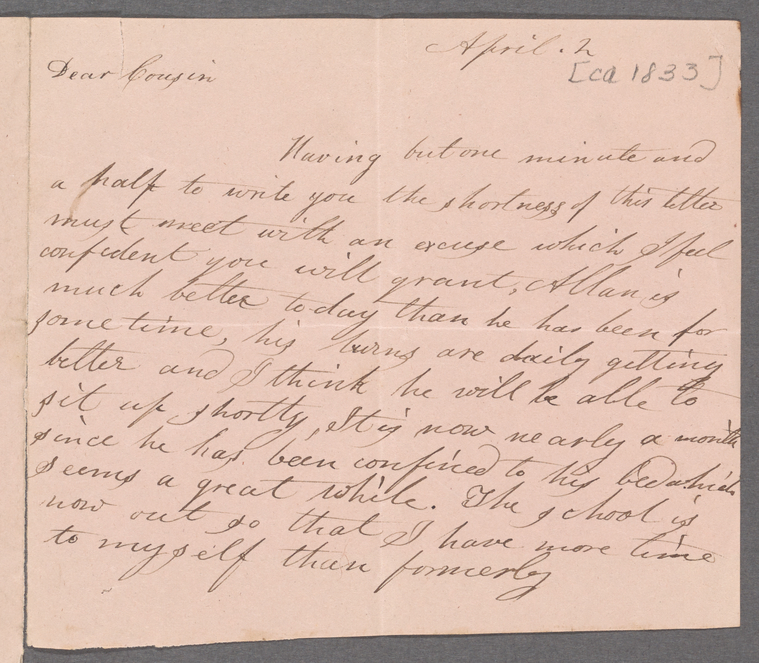 April. 2
[ca 1833]
Dear Cousin
Having but one minute and
a half to write you the shortness of this letter
must meet with an excuse which I feel
confident you will grant, Allan is
much better to day than he has been for
some time, his burns are daily getting
better and I think he will be able to
sit up shortly, It is now nearly a month
since he has been confined to his bed which
seems a great while. The school is
now out so that I have more time
to myself than formerly